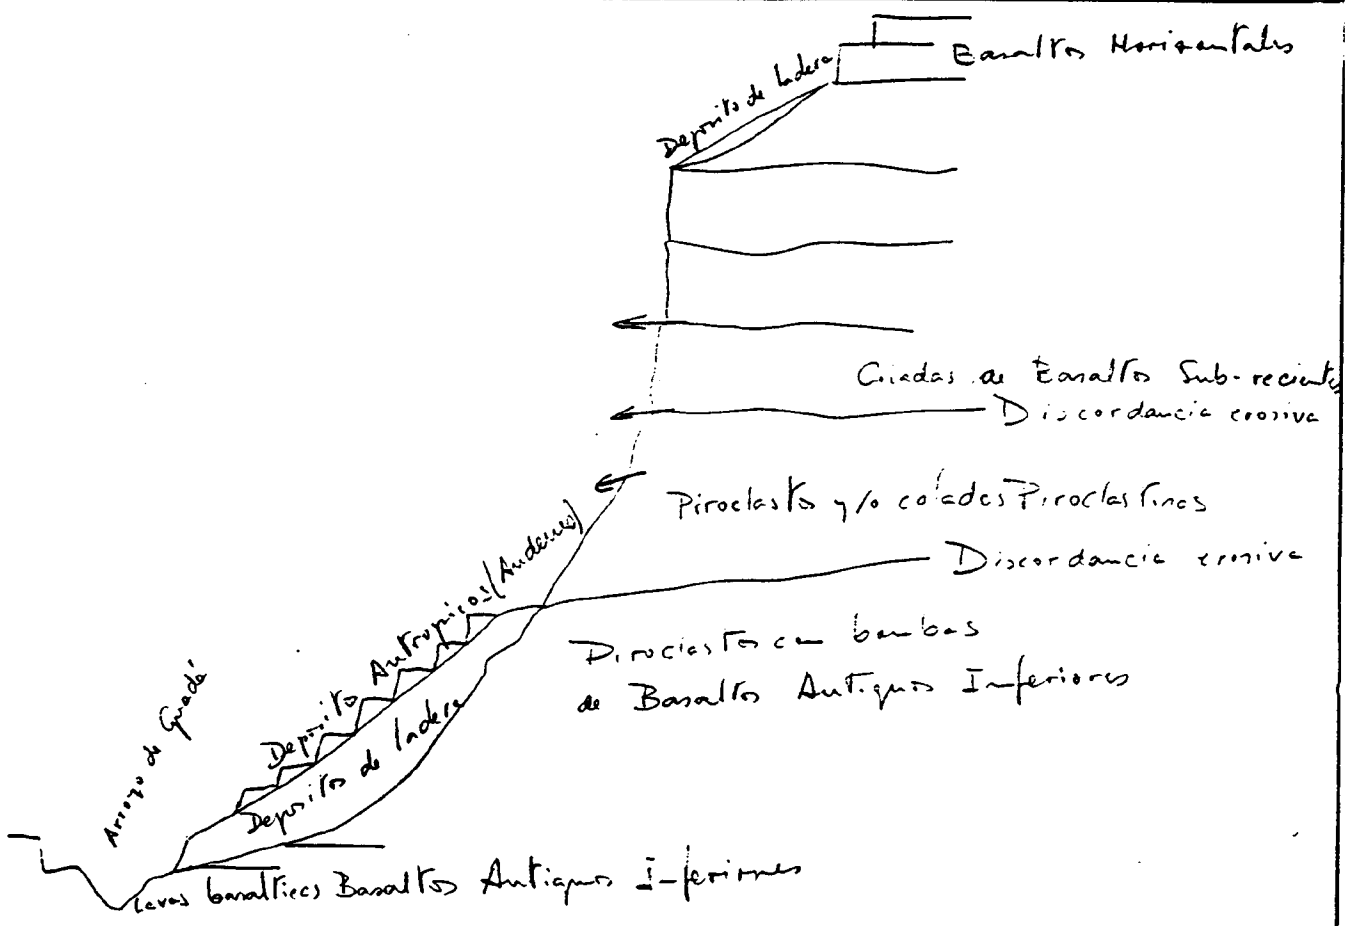 Basaltos Horizontales
Deposito de ladera
Coladas de Basaltos Sub-recientes
Discordancia erosiva
Piroclastos y/o coladas Piroclasticas
Discordancia erosiva
Deposito Antropicos (Andenes)
Piroclastos con bombas
de Basaltos Antiguos Inferiores
Depositos de ladera
Arroyo de Guadá
Lavas basalticas Basaltos Antiguos Inferiores